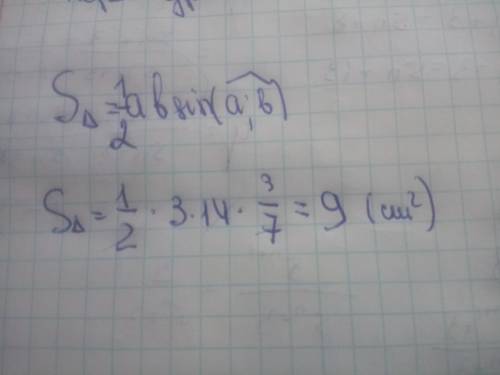 S△ = 1/2 a b sin(a; b)
S△ = 1/2 · 3 · 14 · 3/7 = 9 (cm²)